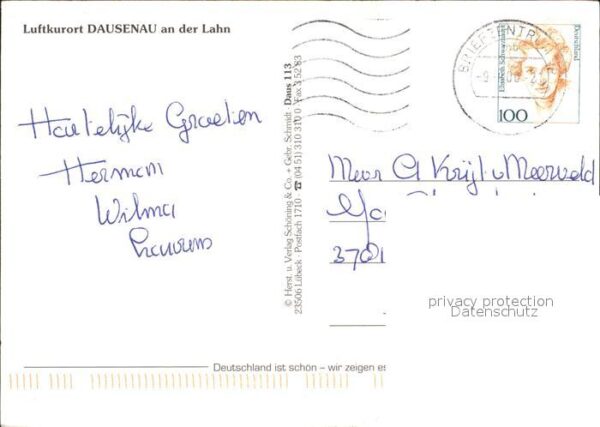 Luftkurort DAUSENAU an der Lahn
Hartelijke Groeten
Herman
Wilma
Laurens
© Herst. u. Verlag Schöning & Co. + Gebr. Schmidt Daus 113
23506 Lübeck · Postfach 1710 · ☎ (04 51) 310 310 Fax 3 52 83
BRIEFZENTRUM
Deutschland
100
Mevr A Krijt v Meerveld
3781
privacy protection
Datenschutz
Deutschland ist schön – wir zeigen es